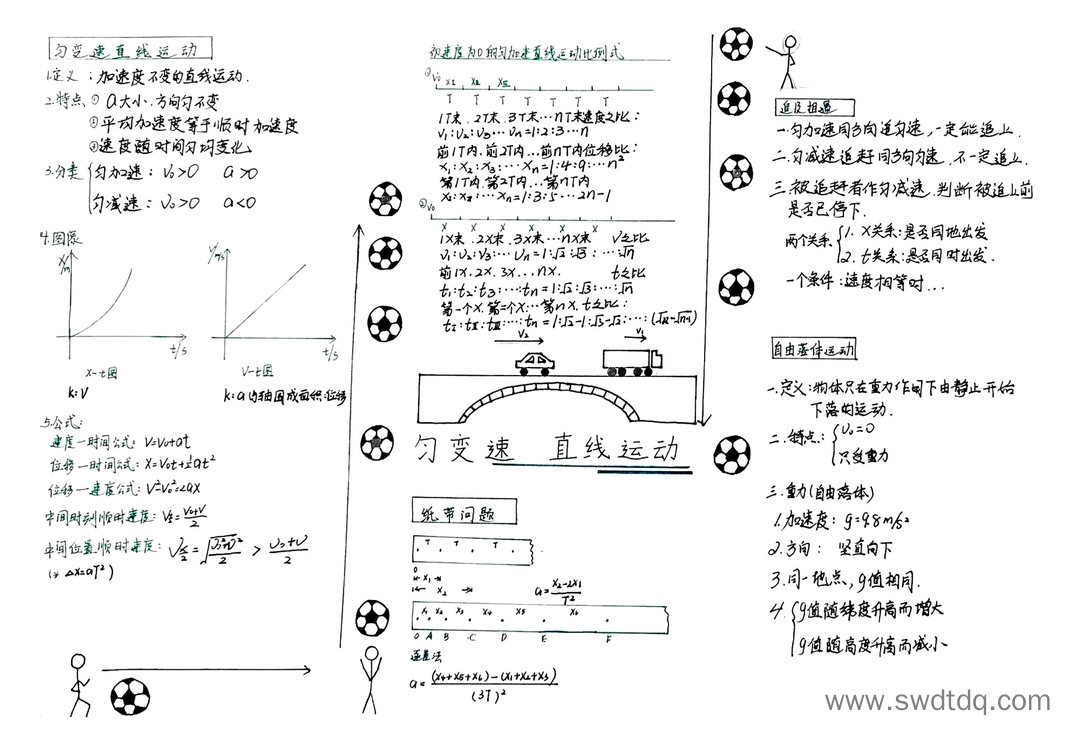 匀变速直线运动
1.定义：加速度不变的直线运动.
2.特点、① a大小.方向匀不变
②平均加速度等于顺时加速度
③速度随时间匀均变化
3.分类 {匀加速：v₀>0 a>0
匀减速：v₀>0 a<0
4.图像
x/m
t/s
x-t图
k=v
v/m/s
t/s
v-t图
k=a 与轴围成面积:位移
5.公式：
速度-时间公式：v=v₀+at
位移-时间公式：x=v₀t+½at²
位移-速度公式：v²-v₀²=2ax
中间时刻顺时速度：v½=(v₀+v)/2
中间位置顺时速度：vₓ/₂=√((v₀²+v²)/2) > (v₀+v)/2
(* Δx=aT²)
初速度为0的匀加速直线运动比例式
① v₀ xⅠ xⅡ xⅢ
T T T T T T T
1T末.2T末.3T末…nT末速度之比：
v₁:v₂:v₃…vₙ=1:2:3…n
前1T内.前2T内…前nT内位移比：
x₁:x₂:x₃:…xₙ=1:4:9:…n²
第1T内.第2T内…第nT内
xⅠ:xⅡ:…xₙ=1:3:5…2n-1
② v₀
x x x x x x
1x末.2x末.3x末…nx末 v之比
v₁:v₂:v₃:…vₙ=1:√2:√3:…:√n
前1x.2x.3x…nx. t之比：
t₁:t₂:t₃:…:tₙ=1:√2:√3:…:√n
第一个x.第二个x…第n x.t之比：
tⅠ:tⅡ:tⅢ:…:tₙ=1:√2-1:√3-√2:…:(√n-√n-1)
v₂ v₁
匀变速 直线运动
纸带问题
T T T
0
x₁
x₂
a=(x₂-2x₁)/T²
x₁ x₂ x₃ x₄ x₅ x₆
0 A B C D E F
逐差法
a=((x₄+x₅+x₆)-(x₁+x₂+x₃))/(3T)²
追及相遇
一.匀加速同方向追匀速,一定能追上.
二.匀减速追赶同方向匀速,不一定追上.
三.被追赶者作匀减速.判断被追上前
是否已停下.
两个关系 {1. x关系:是否同地出发
2. t关系:是否同时出发.
一个条件:速度相等时...
自由落体运动
一.定义:物体只在重力作用下由静止开始
下落的运动.
二.特点：{v₀=0
只受重力
三.重力(自由落体)
1.加速度：g=9.8m/s²
2.方向： 竖直向下
3.同一地点,g值相同.
4.{g值随纬度升高而增大
g值随高度升高而减小
www.swdtdq.com